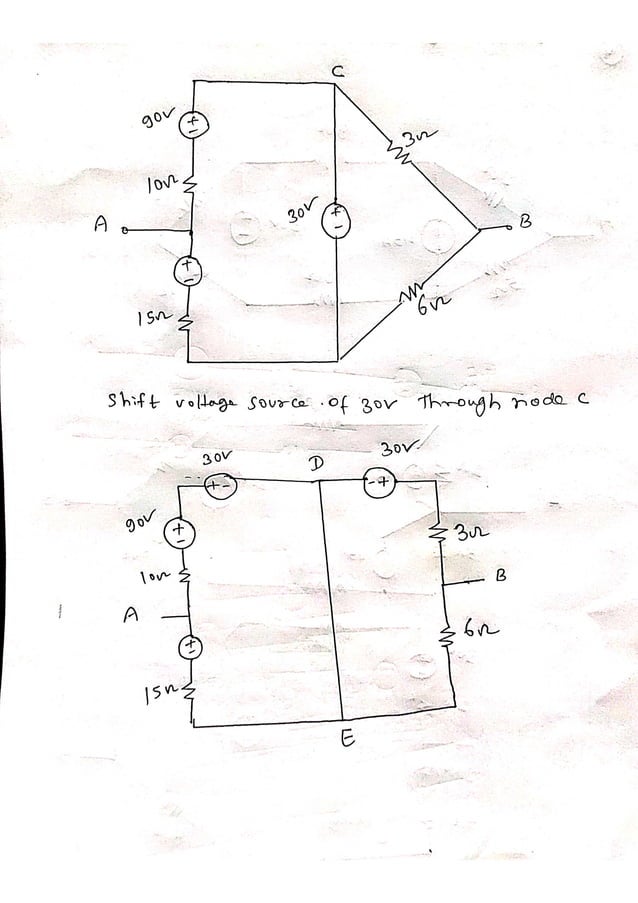 C
90V
3Ω
10Ω
30V
A
B
15Ω
6Ω
Shift voltage source of 30V Through node C
30V
D
30V
90V
3Ω
10Ω
B
A
6Ω
15Ω
E